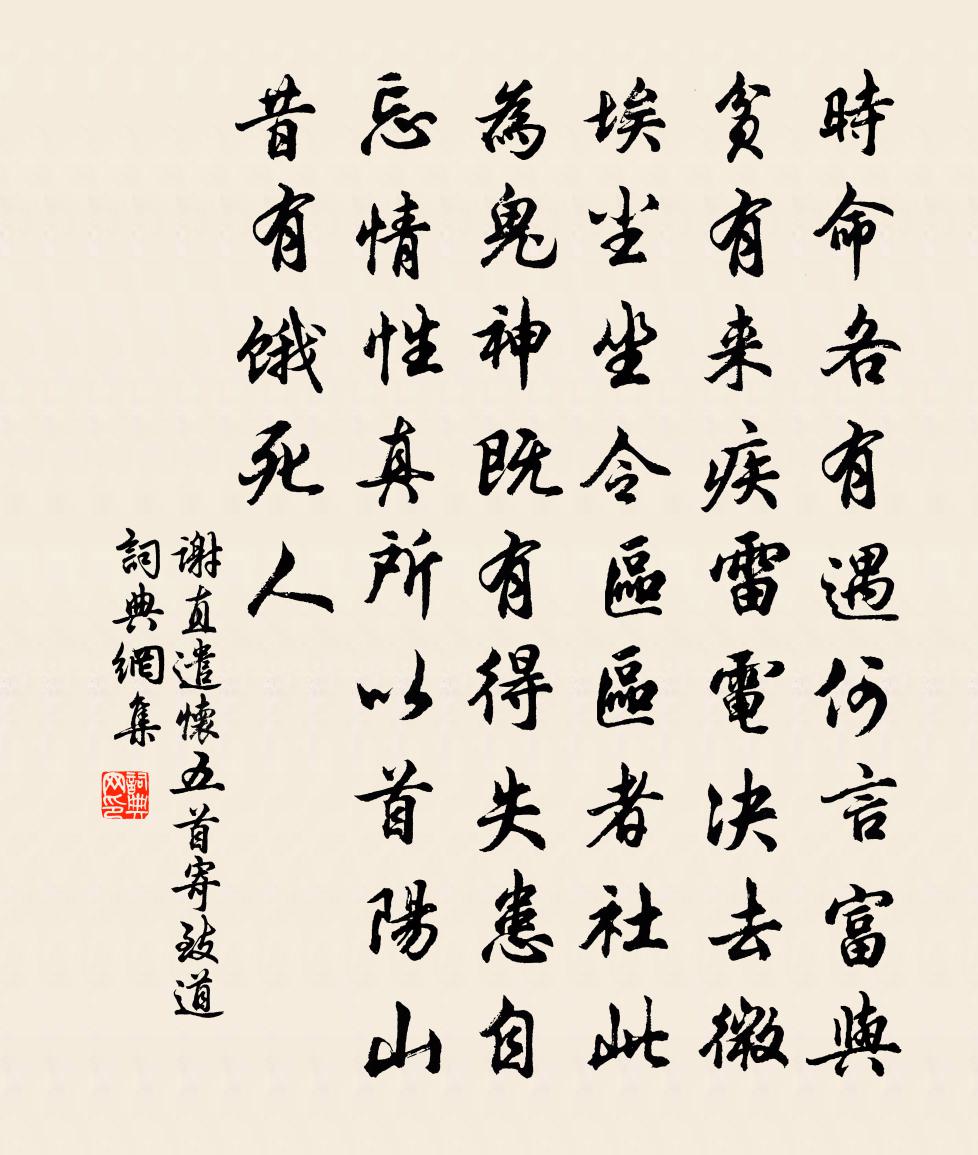 時命各有遇何言富與
貧有来疾雷電决去微
埃尘坐令區區者社此
為鬼神既有得失患自
忘情性真所以首陽山
昔有餓死人
谢直遣懷五首寄致道
詞典網集
詞典网印